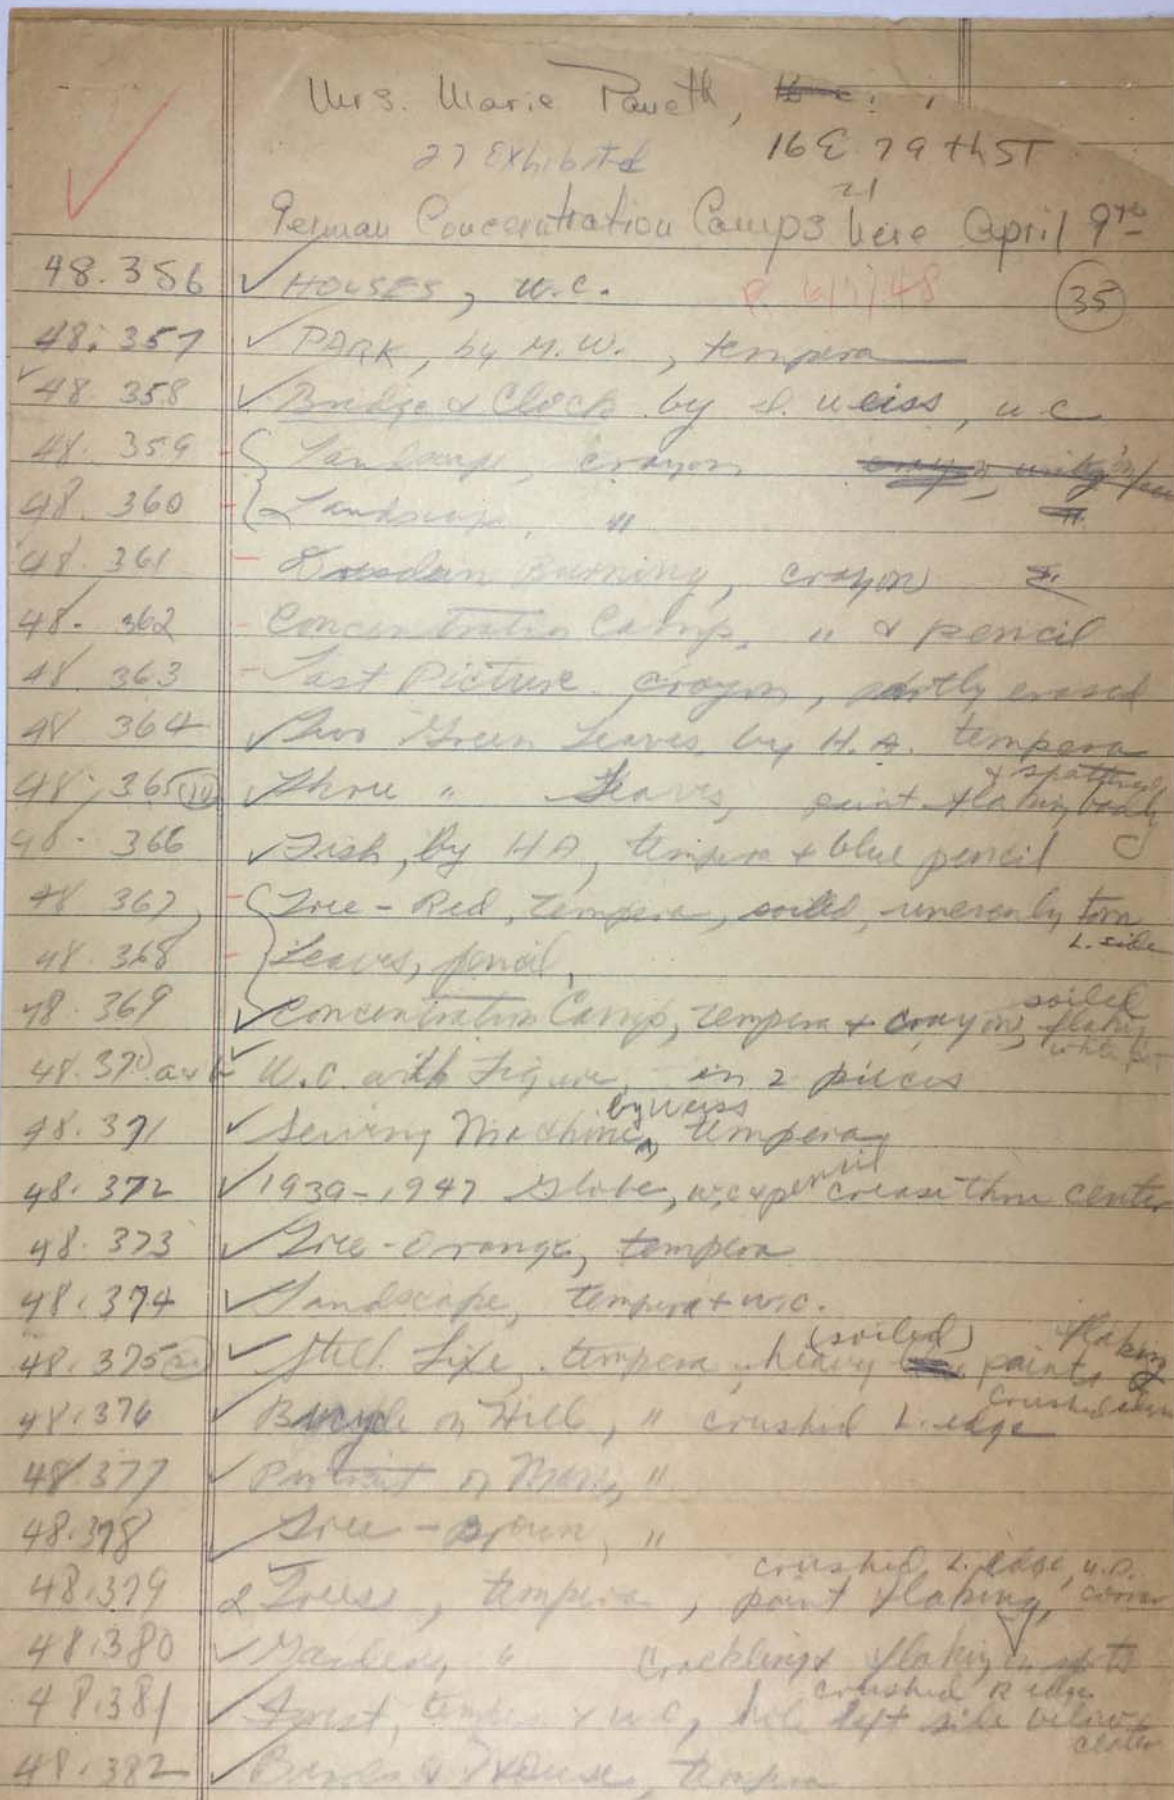 Mrs. Marie Paneth,
27 Exhibited 16 E 79th ST
21
German Concentration Camps here April 9th
48.356 ✓ HOUSES, w.c. 6/1/48 (35)
48.357 ✓ PARK, by M.W., tempera
✓48 358 ✓ Bridge & Clock by weiss, w c
48. 359 - Landscape, crayon
48. 360 - Landscape, "
48. 361 - Dresden Burning, crayon
48. 362 - Concentration Camp, " & pencil
48 363 - Last Picture crayon, partly erased
48 364 ✓ Two Green Leaves by H.A. tempera
& spattered
48. 365 ✓ Three " Leaves, paint flaking badly
48. 366 ✓ Fish, by HA, tempera & blue pencil
48 367, - Tree - Red, tempera, soiled, unevenly torn
L. side
48 368 - Leaves, pencil,
soiled
48. 369 ✓ Concentration Camp, tempera & crayon, flaky
48.370 a & b ✓ W.C. with Figure, in 2 pieces
by Weiss
48.371 ✓ Sewing Machine, tempera
48.372 ✓ 1939-1947 Globe, w.c. & pencil crease thru center
48.373 ✓ Tree-Orange, tempera
48.374 ✓ Landscape, tempera & w.c.
(soiled) flaking
48.375 ✓ Still Life, tempera, heavy paint, &
crushed
48.376 ✓ Bicycle on Hill, " crushed L. edge
48.377 ✓ Portrait of Man, "
48.378 ✓ Tree - Brown, "
crushed L. edge, u.R.
48.379 2 Trees, tempera, paint flaking, corner
48.380 ✓ Garden, " Crackling & flaking in spots
crushed R edge
48.381 ✓ Forest, tempera & w c, hole left side below
center
48.382 ✓ House, tempera